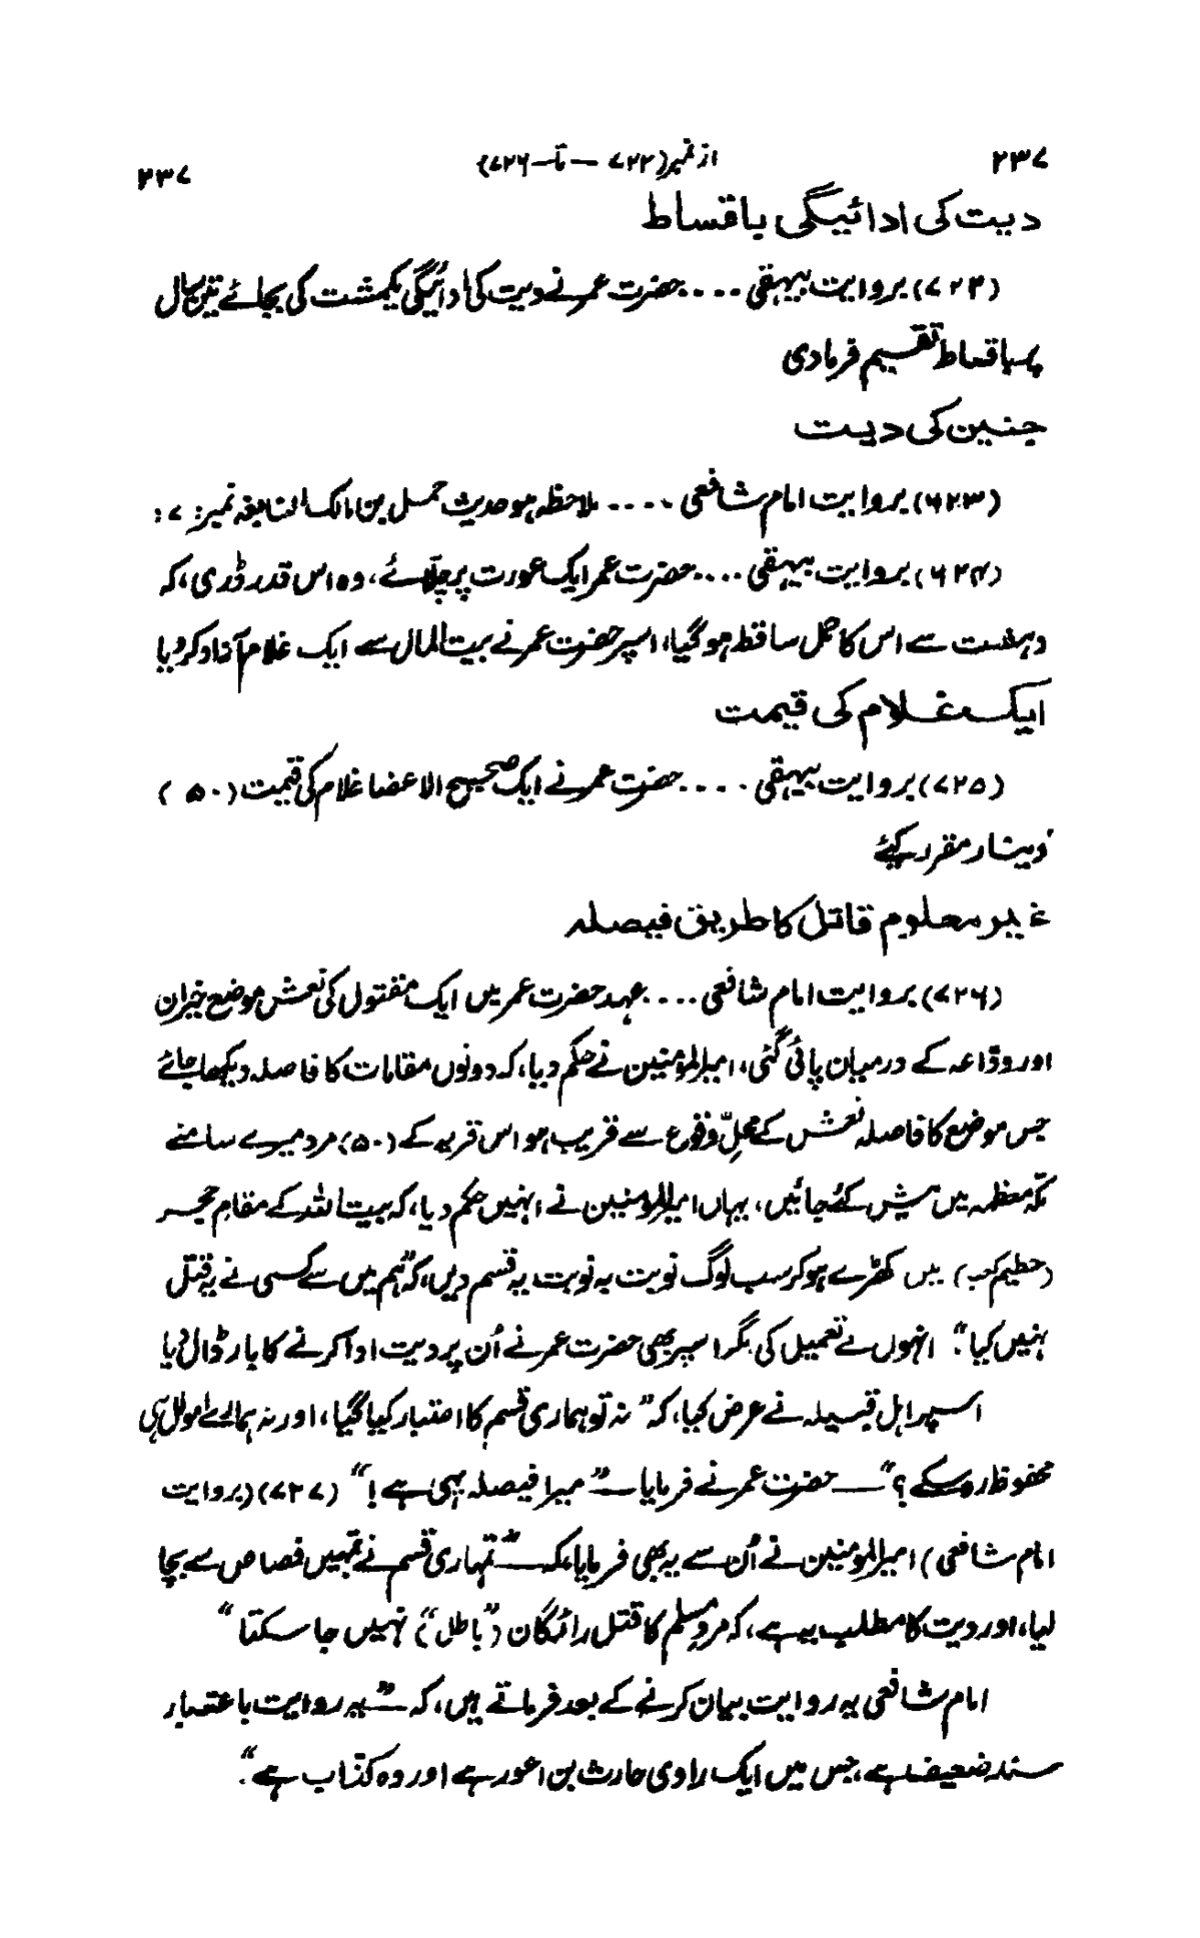 ۲۳۷ از نمبر (۷۲۲ — تا — ۷۲۶) ۲۳۷
دیت کی ادائیگی باقساط
(۷۲۲) بروایت بیہقی .... حضرت عمر نے دیت کی ادائیگی یکمشت کی بجائے تین سال
پر باقساط تقسیم فرمادی
جنین کی دیت
(۶۲۳) بروایت امام شافعی ..... ملاحظہ ہو حدیث حمل بن مالک النابغہ نمبر: ۷:
(۶۲۴) بروایت بیہقی .... حضرت عمر ایک عورت پر چلّائے، وہ اس قدر ڈری، کہ
دہشت سے اس کا حمل ساقط ہو گیا، اسپر حضرت عمر نے بیت المال سے ایک غلام آزاد کر دیا
ایک غلام کی قیمت
(۷۲۵) بروایت بیہقی .... حضرت عمر نے ایک صحیح الاعضا غلام کی قیمت (۵۰)
دینار مقرر کیئے
غیر معلوم قاتل کا طریق فیصلہ
(۷۲۶) بروایت امام شافعی .... عہد حضرت عمر میں ایک مقتول کی نعش موضع خیران
اور وداعہ کے درمیان پائی گئی، امیر المؤمنین نے حکم دیا، کہ دونوں مقامات کا فاصلہ دیکھا جائے
جس موضع کا فاصلہ نعش کے محلِّ وقوع سے قریب ہو اس قریہ کے (۵۰) مرد میرے سامنے
مکّہ معظمہ میں پیش کئے جائیں، یہاں امیر المومنین نے انہیں حکم دیا، کہ بیت اللہ کے مقام حجر
(حطیم کعبہ) میں کھڑے ہو کر سب لوگ نوبت بہ نوبت یہ قسم دیں، کہ "ہم میں سے کسی نے یہ قتل
نہیں کیا"۔ انہوں نے تعمیل کی مگر اسپر بھی حضرت عمر نے اُن پر دیت ادا کرنے کا بار ڈال دیا
اسپر اہل قبیلہ نے عرض کیا، کہ "نہ تو ہماری قسم کا اعتبار کیا گیا، اور نہ ہمارے اموال ہی
محفوظ رہ سکے؟" — حضرت عمر نے فرمایا — "میرا فیصلہ یہی ہے!" (۷۲۷) (بروایت
امام شافعی) امیر المومنین نے اُن سے یہ بھی فرمایا، کہ — "تمہاری قسم نے تمہیں قصاص سے بچا
لیا، اور دیت کا مطلب یہ ہے، کہ مردِ مسلم کا قتل رائگان ("باطل") نہیں جا سکتا"
امام شافعی یہ روایت بیان کرنے کے بعد فرماتے ہیں، کہ — "یہ روایت باعتبار
سند ضعیف ہے، جس میں ایک راوی حارث بن اعور ہے اور وہ کذّاب ہے"۔